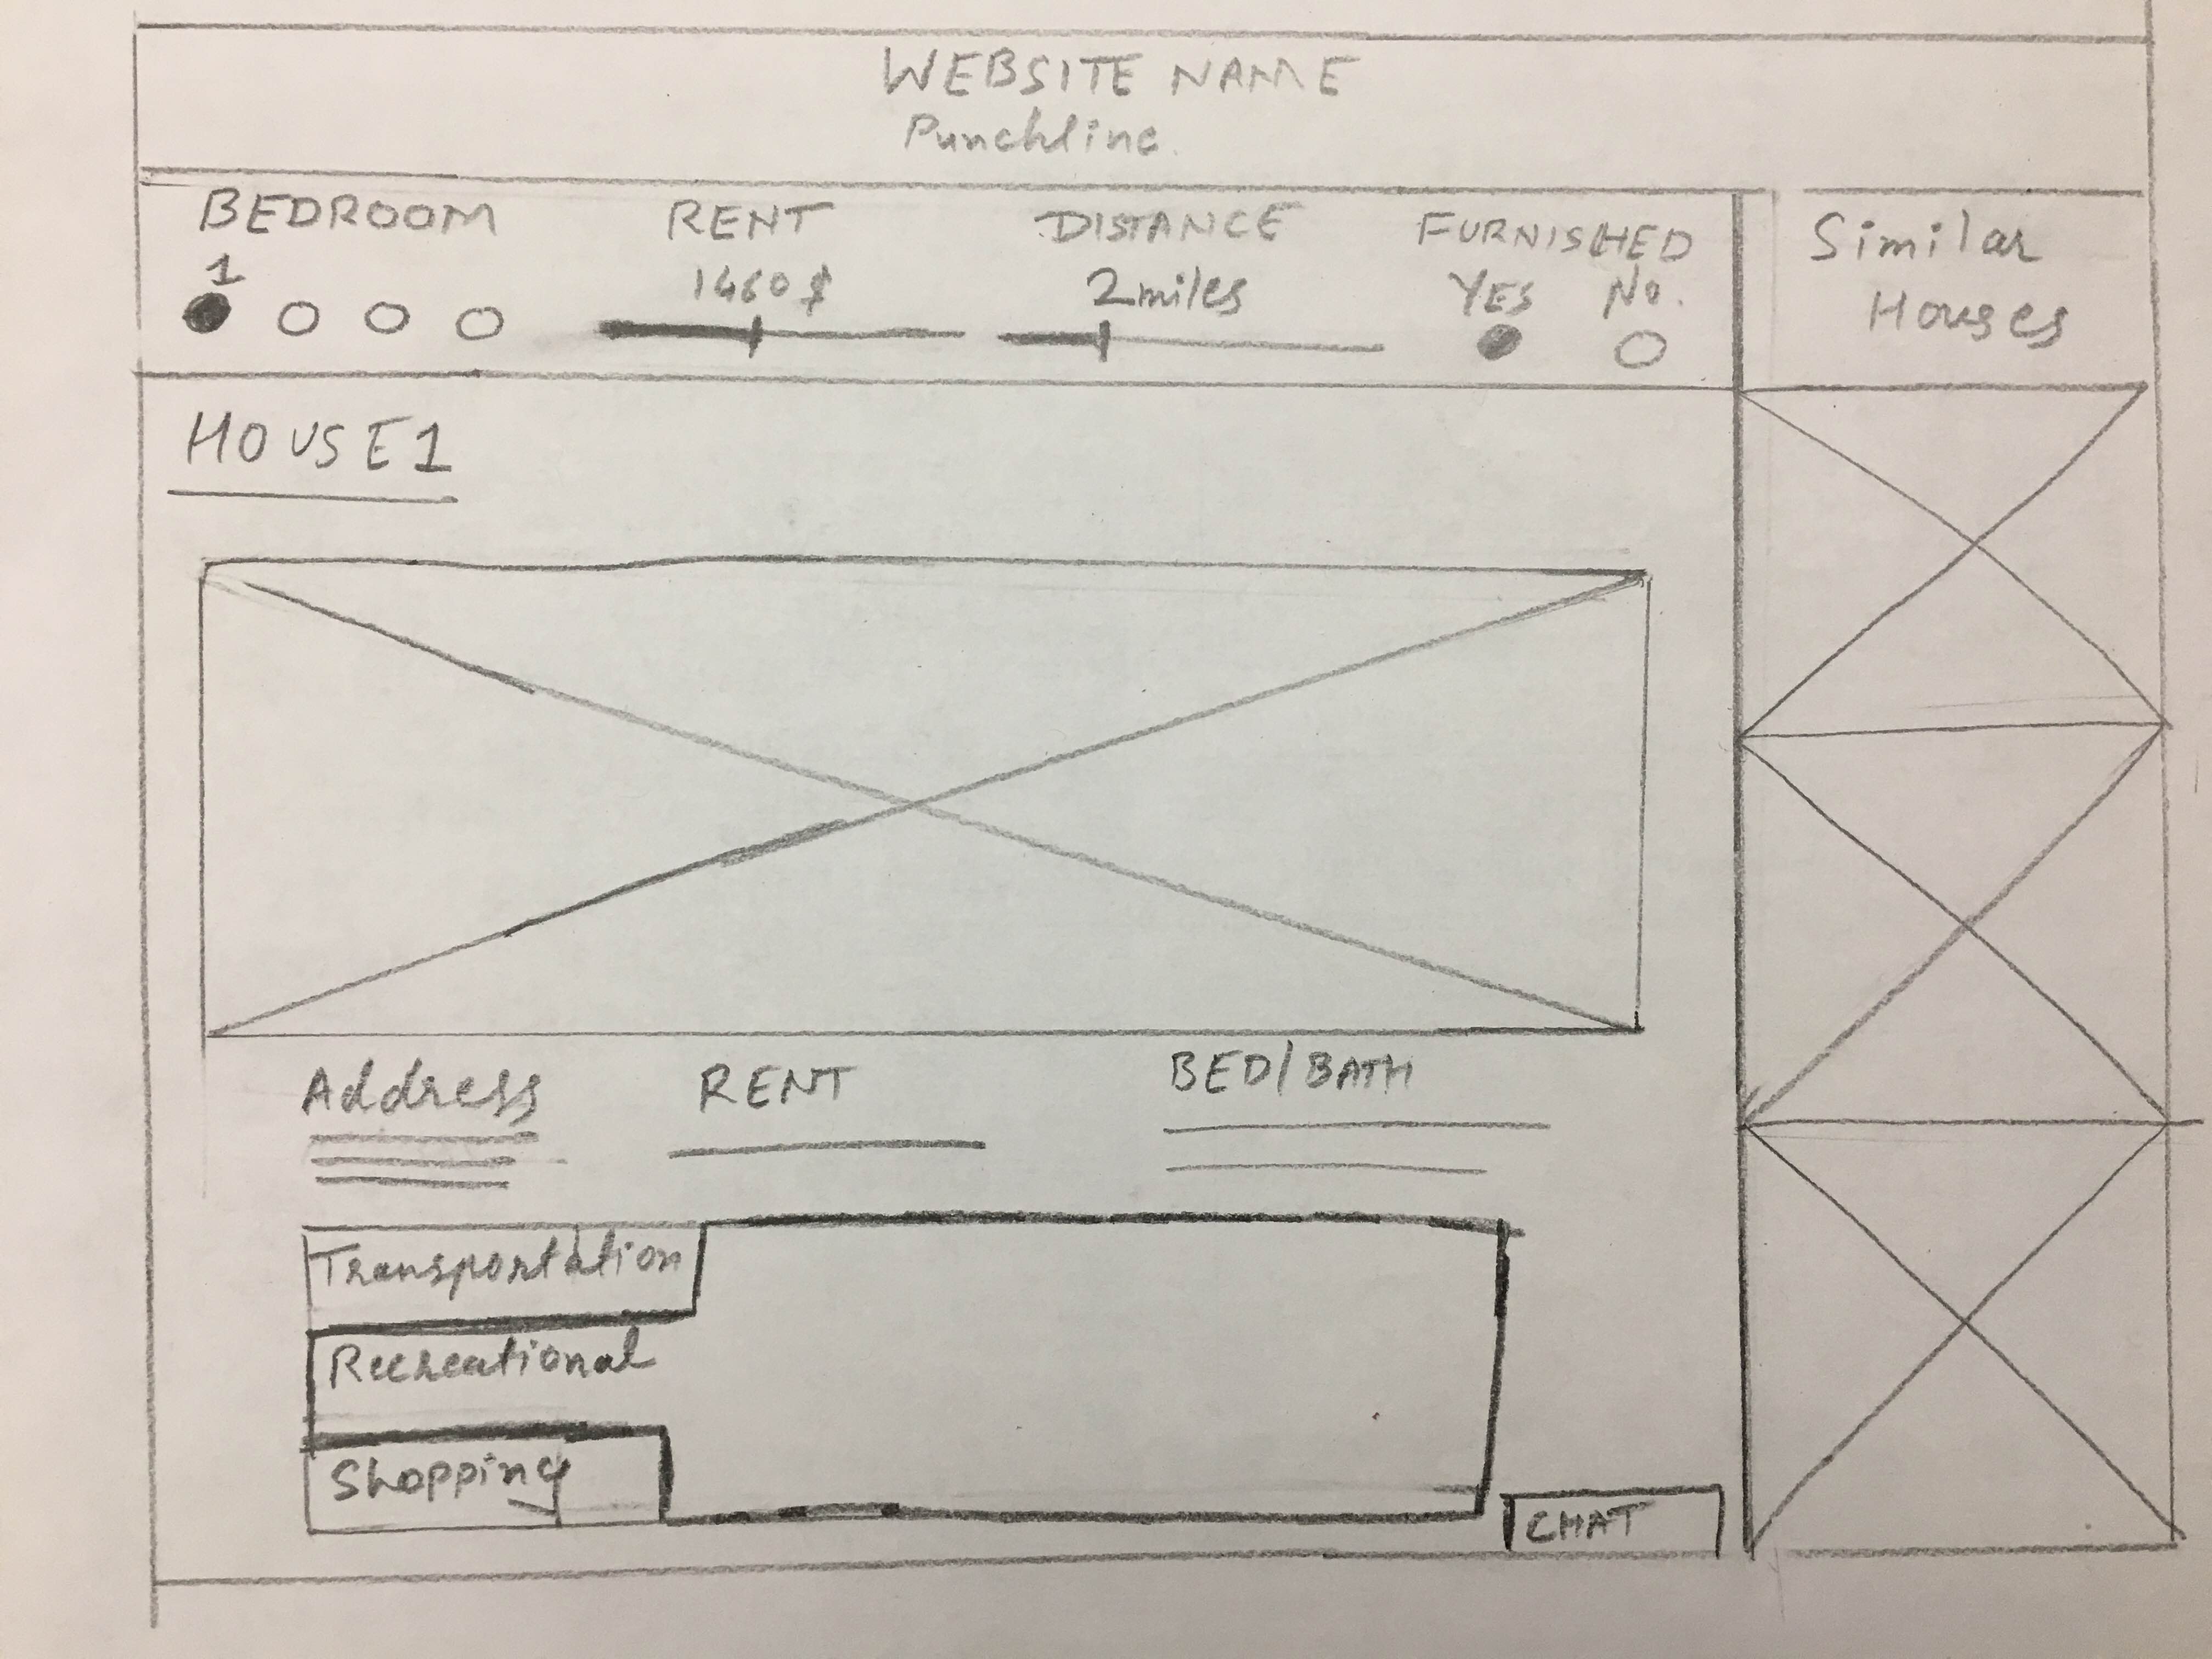 WEBSITE NAME
Punchline.
BEDROOM
1
RENT
1460$
DISTANCE
2miles
FURNISHED
YES No.
Similar
Houses
HOUSE1
Address
RENT
BED/BATH
Transportation
Recreational
Shopping
CHAT